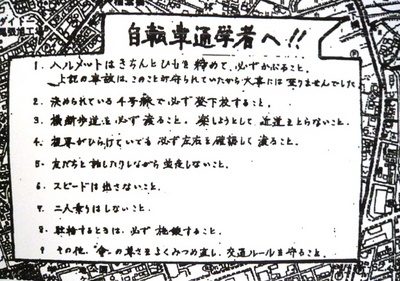 自転車通学者へ!!
1. ヘルメットはきちんとひもを締めて、必ずかぶること。
上記の事故は、このことが守られていたから大事には至りませんでした
2. 決められている4号線で必ず登下校すること。
3. 横断歩道を必ず渡ること。楽しようとして近道をとらないこと。
4. 視界がひらけていても必ず左右を確認して渡ること。
5. 友だちと話したりしながら並走しないこと。
6. スピードは出さないこと。
7. 二人乗りはしないこと。
8. 駐輪するときは、必ず施錠すること。
9 その他、命の尊さをよくみつめ直し、交通ルールを守ること。